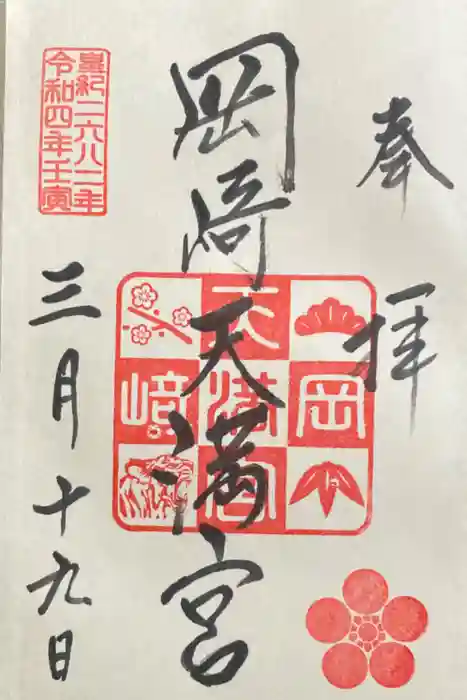 奉拝
岡崎天満宮
岡
天満宮
崎
皇紀二六八二年
令和四年壬寅
三月十九日